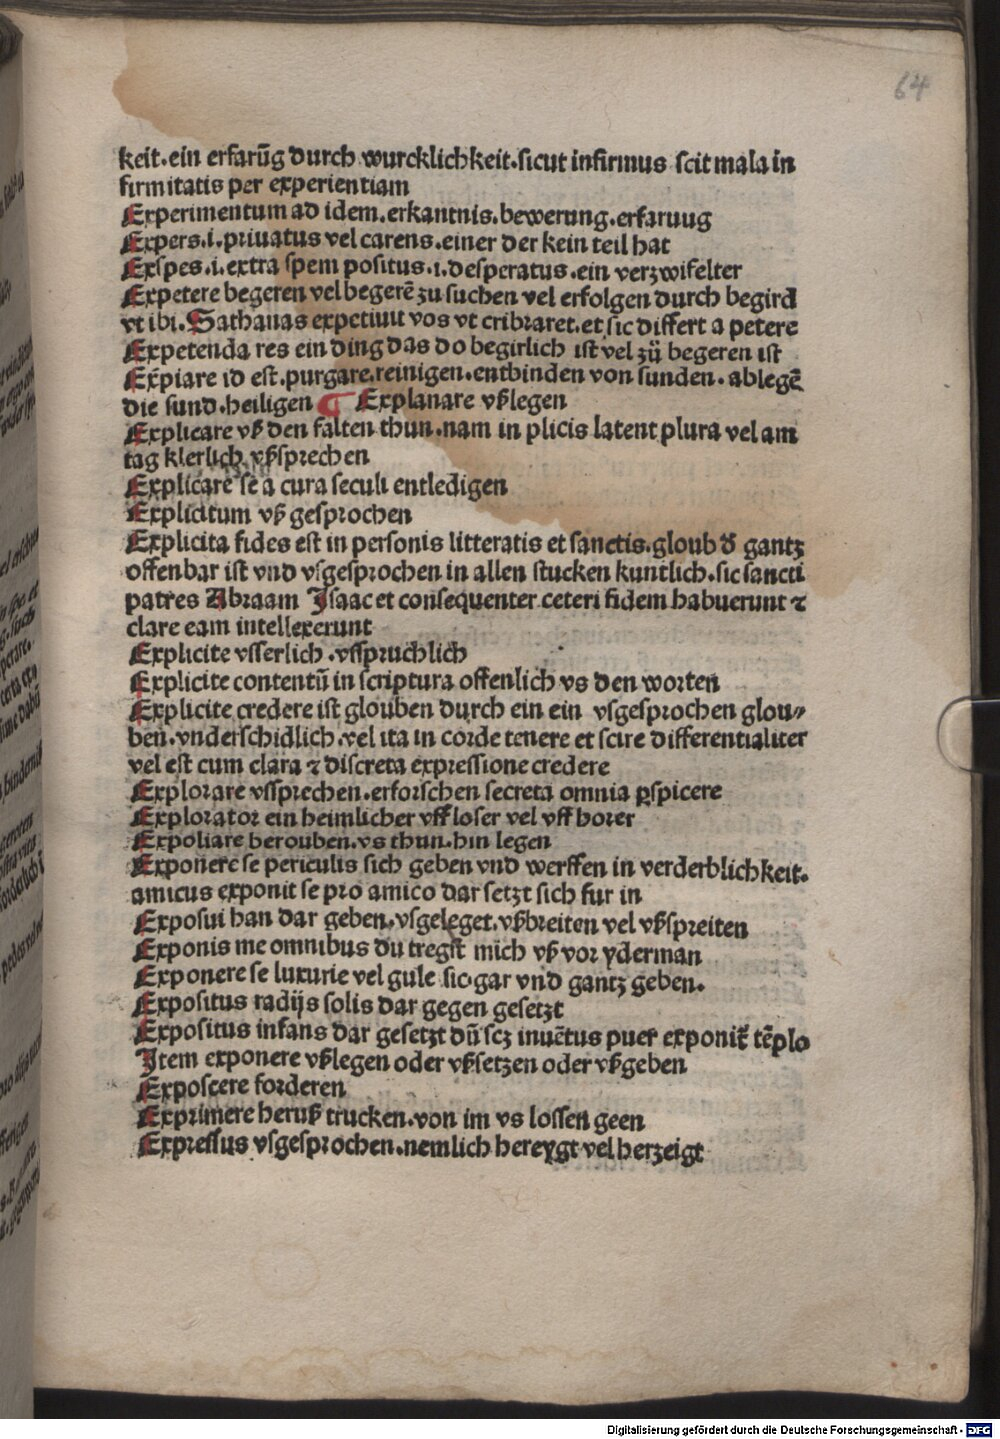 64
keit.ein erfarūg durch wurcklichkeit.sicut infirmus scit mala in
firmitatis per experientiam
Experimentum ad idem.erkantnis.bewerung.erfaruug
Expers.i.priuatus vel carens.einer der kein teil hat
Exspes.i.extra spem positus.i.desperatus.ein verzwifelter
Expetere begeren vel begerē zu suchen vel erfolgen durch begird
vt ibi.Sathanas expetiuit vos vt cribraret.et sic differt a petere
Expetenda res ein ding das do begirlich ist vel zü begeren ist
Expiare id est.purgare.reinigen.entbinden von sunden.ablegē
die sund.heiligen ¶ Explanare vßlegen
Explicare vß den falten thun.nam in plicis latent plura vel am
tag klerlich vßsprechen
Explicare se a cura seculi entledigen
Explicitum vß gesprochen
Explicita fides est in personis litteratis et sanctis.gloub d̄ gantz
offenbar ist vnd vsgesprochen in allen stucken kuntlich.sic sancti
patres Abraam Isaac et consequenter ceteri fidem habuerunt ⁊
clare eam intellexerunt
Explicite vsserlich.vsspruchlich
Explicite contentū in scriptura offenlich vs den worten
Explicite credere ist glouben durch ein ein vsgesprochen glou⸗
ben.vnderschidlich.vel ita in corde tenere et scire differentialiter
vel est cum clara ⁊ discreta expressione credere
Explorare vssprechen.erforschen secreta omnia ꝑspicere
Explorator ein heimlicher vff loser vel vff horer
Expoliare berouben.vs thun.hin legen
Exponere se periculis sich geben vnd werffen in verderblichkeit.
amicus exponit se pro amico dar setzt sich fur in
Exposui han dar geben.vsgeleget.vßbreiten vel vßspreiten
Exponis me omnibus du tregst mich vß vor yderman
Exponere se luxurie vel gule sic.gar vnd gantz geben.
Expositus radijs solis dar gegen gesetzt
Expositus infans dar gesetzt dū scz inuētus puer exponit̄ tēplo
Item exponere vßlegen oder vßsetzen oder vßgeben
Exposcere forderen
Exprimere heruß trucken.von im vs lossen geen
Expressus vsgesprochen.nemlich hereygt vel herzeigt
Digitalisierung gefördert durch die Deutsche Forschungsgemeinschaft - DFG